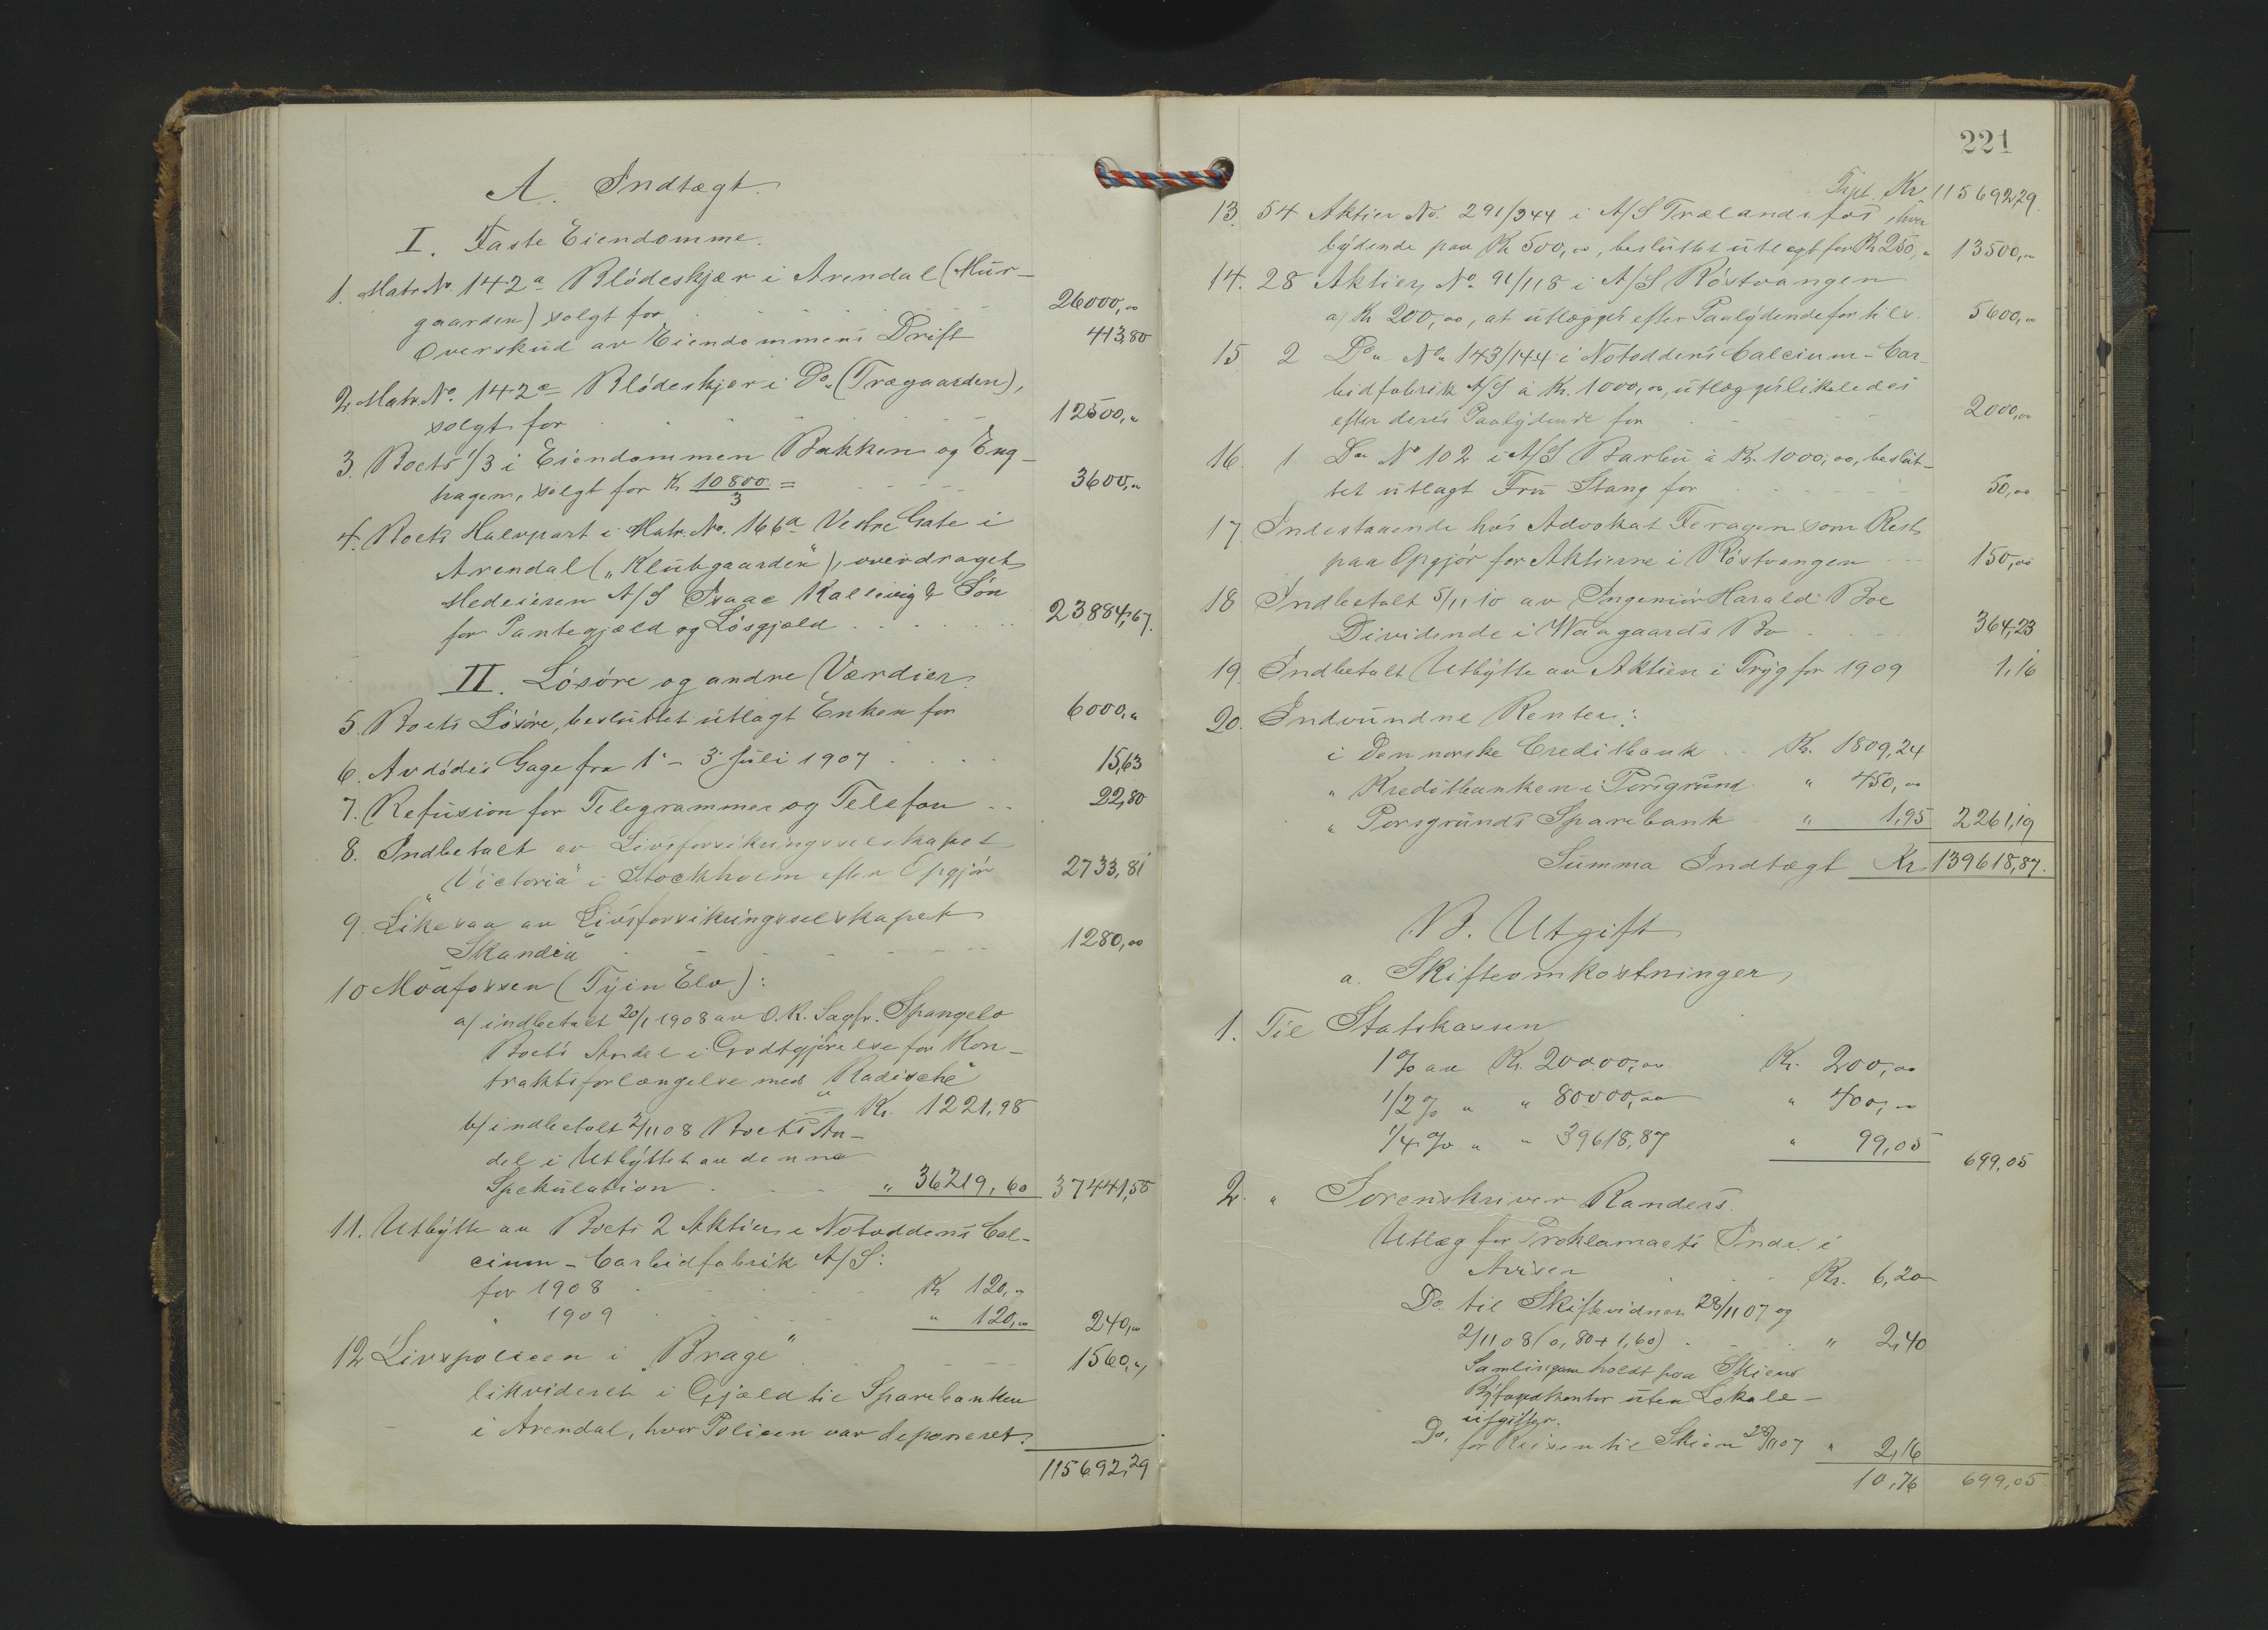 A. Indtægt.
I. Faste Eiendomme.
1. Matr. No. 142a Blödeskjær i Arendal (Mur-
gaarden) solgt for 26000,00
Overskud av Eiendommens Drift 413,80
2. Matr. No. 142e Blödeskjær i Do. (Trægaarden),
solgt for 12500,„
3. Boets 1/3 i Eiendommen Bakken og Eng-
hagen, solgt for Kr 10800/3 = 3600,„
4. Boets Halvpart i Matr. No. 166a Vestre Gate i
Arendal („Klubgaarden"), overdraget
Medeieren A/S Isaac Kallevig & Sön
for Pantegjæld og Lösgjæld 23884,67.
II. Lösöre og andre Værdier.
5. Boets Lösöre, besluttet utlagt Enken for 6000,„
6. Avdödes Gage fra 1 - 3 Juli 1907 15,63
7. Refusion for Telegrammer og Telefon 22,80
8. Indbetalt av Livsforsikringsselskapet
„Victoria" i Stockholm efter Opgjör 2733,81
9. Likesaa av Livsforsikringsselskapet
„Skandia" 1280,00
10 Moafossen (Tyin Elv):
a/ indbetalt 20/1 1908 av O.R. Sagfr. Spangelo
Boets Andel i Godtgjörelse for Kon-
traktsforlængelse med „Badische"
Kr. 1221,98
b/ indbetalt 2/11 08 Boets An-
del i Utbyttet av denne
Spekulation „ 36219,60 37441,58
11. Utbytte av Boets 2 Aktier i Notoddens Cal-
cium-Carbidfabrik A/S:
for 1908 Kr 120,„
„ 1909 „ 120,00 240,00
12 Livspolicen i „Brage" 1560,„
likvideret i Gjæld til Sparebanken
i Arendal, hvor Policen var deponeret.
115692,29
221
Trpt. Kr 115692,29.
13. 54 Aktier No. 291/344 i A/S Trælandsfos, hver
lydende paa Kr 500,00, besluttet utlagt for Kr 250,„ 13500,00
14. 28 Aktier No. 91/118 i A/S Röstvangen
a/ Kr 200,00, at utlægges efter Paalydende for tils. 5600,00
15 2 Do. No. 143/144 i Notoddens Calcium-Car-
bidfabrik A/S à Kr. 1000,00, utlægges likeledes
efter deres Paalydende for 2000,00
16 1 Do No 102 i A/S Barbu à Kr. 1000,00, beslut-
tet utlagt Fru Stang for 50,00
17 Indestaaende hos Advokat Feragen som Rest
paa Opgjör for Aktierne i Röstvangen 150,00
18 Indbetalt 5/11 10 av Ingeniör Harald Boe
Dividende i Waagaards Bo 364,23
19. Indbetalt Utbytte av Aktien i Tryg for 1909 1,16
20. Indvundne Renter:
i Den norske Creditbank Kr. 1809,24
„ Kreditbanken i Porsgrund „ 450,00
„ Porsgrunds Sparebank „ 1,95 2261,19
Summa Indtægt Kr 139618,87.
B. Utgift
a. Skifteomkostninger
1. Til Statskassen
1% av Kr. 20000,00 Kr. 200,00
1/2% „ „ 80000,00 „ 400,00
1/4% „ „ 39618,87 „ 99,05 699,05
2. „ Sorenskriver Randers.
Utlæg for Proklamaets Indr. i
Aviser Kr. 6,20
Do. til Skiftevidner 28/11 07 og
2/11 08 (0,80 + 1,60) „ 2,40
Samlingene holdt paa Skiens
Byfogedkontor uten Lokale-
utgifter.
Do. for Reisen til Skien 28/11 07 „ 2,16
10,76 699,05